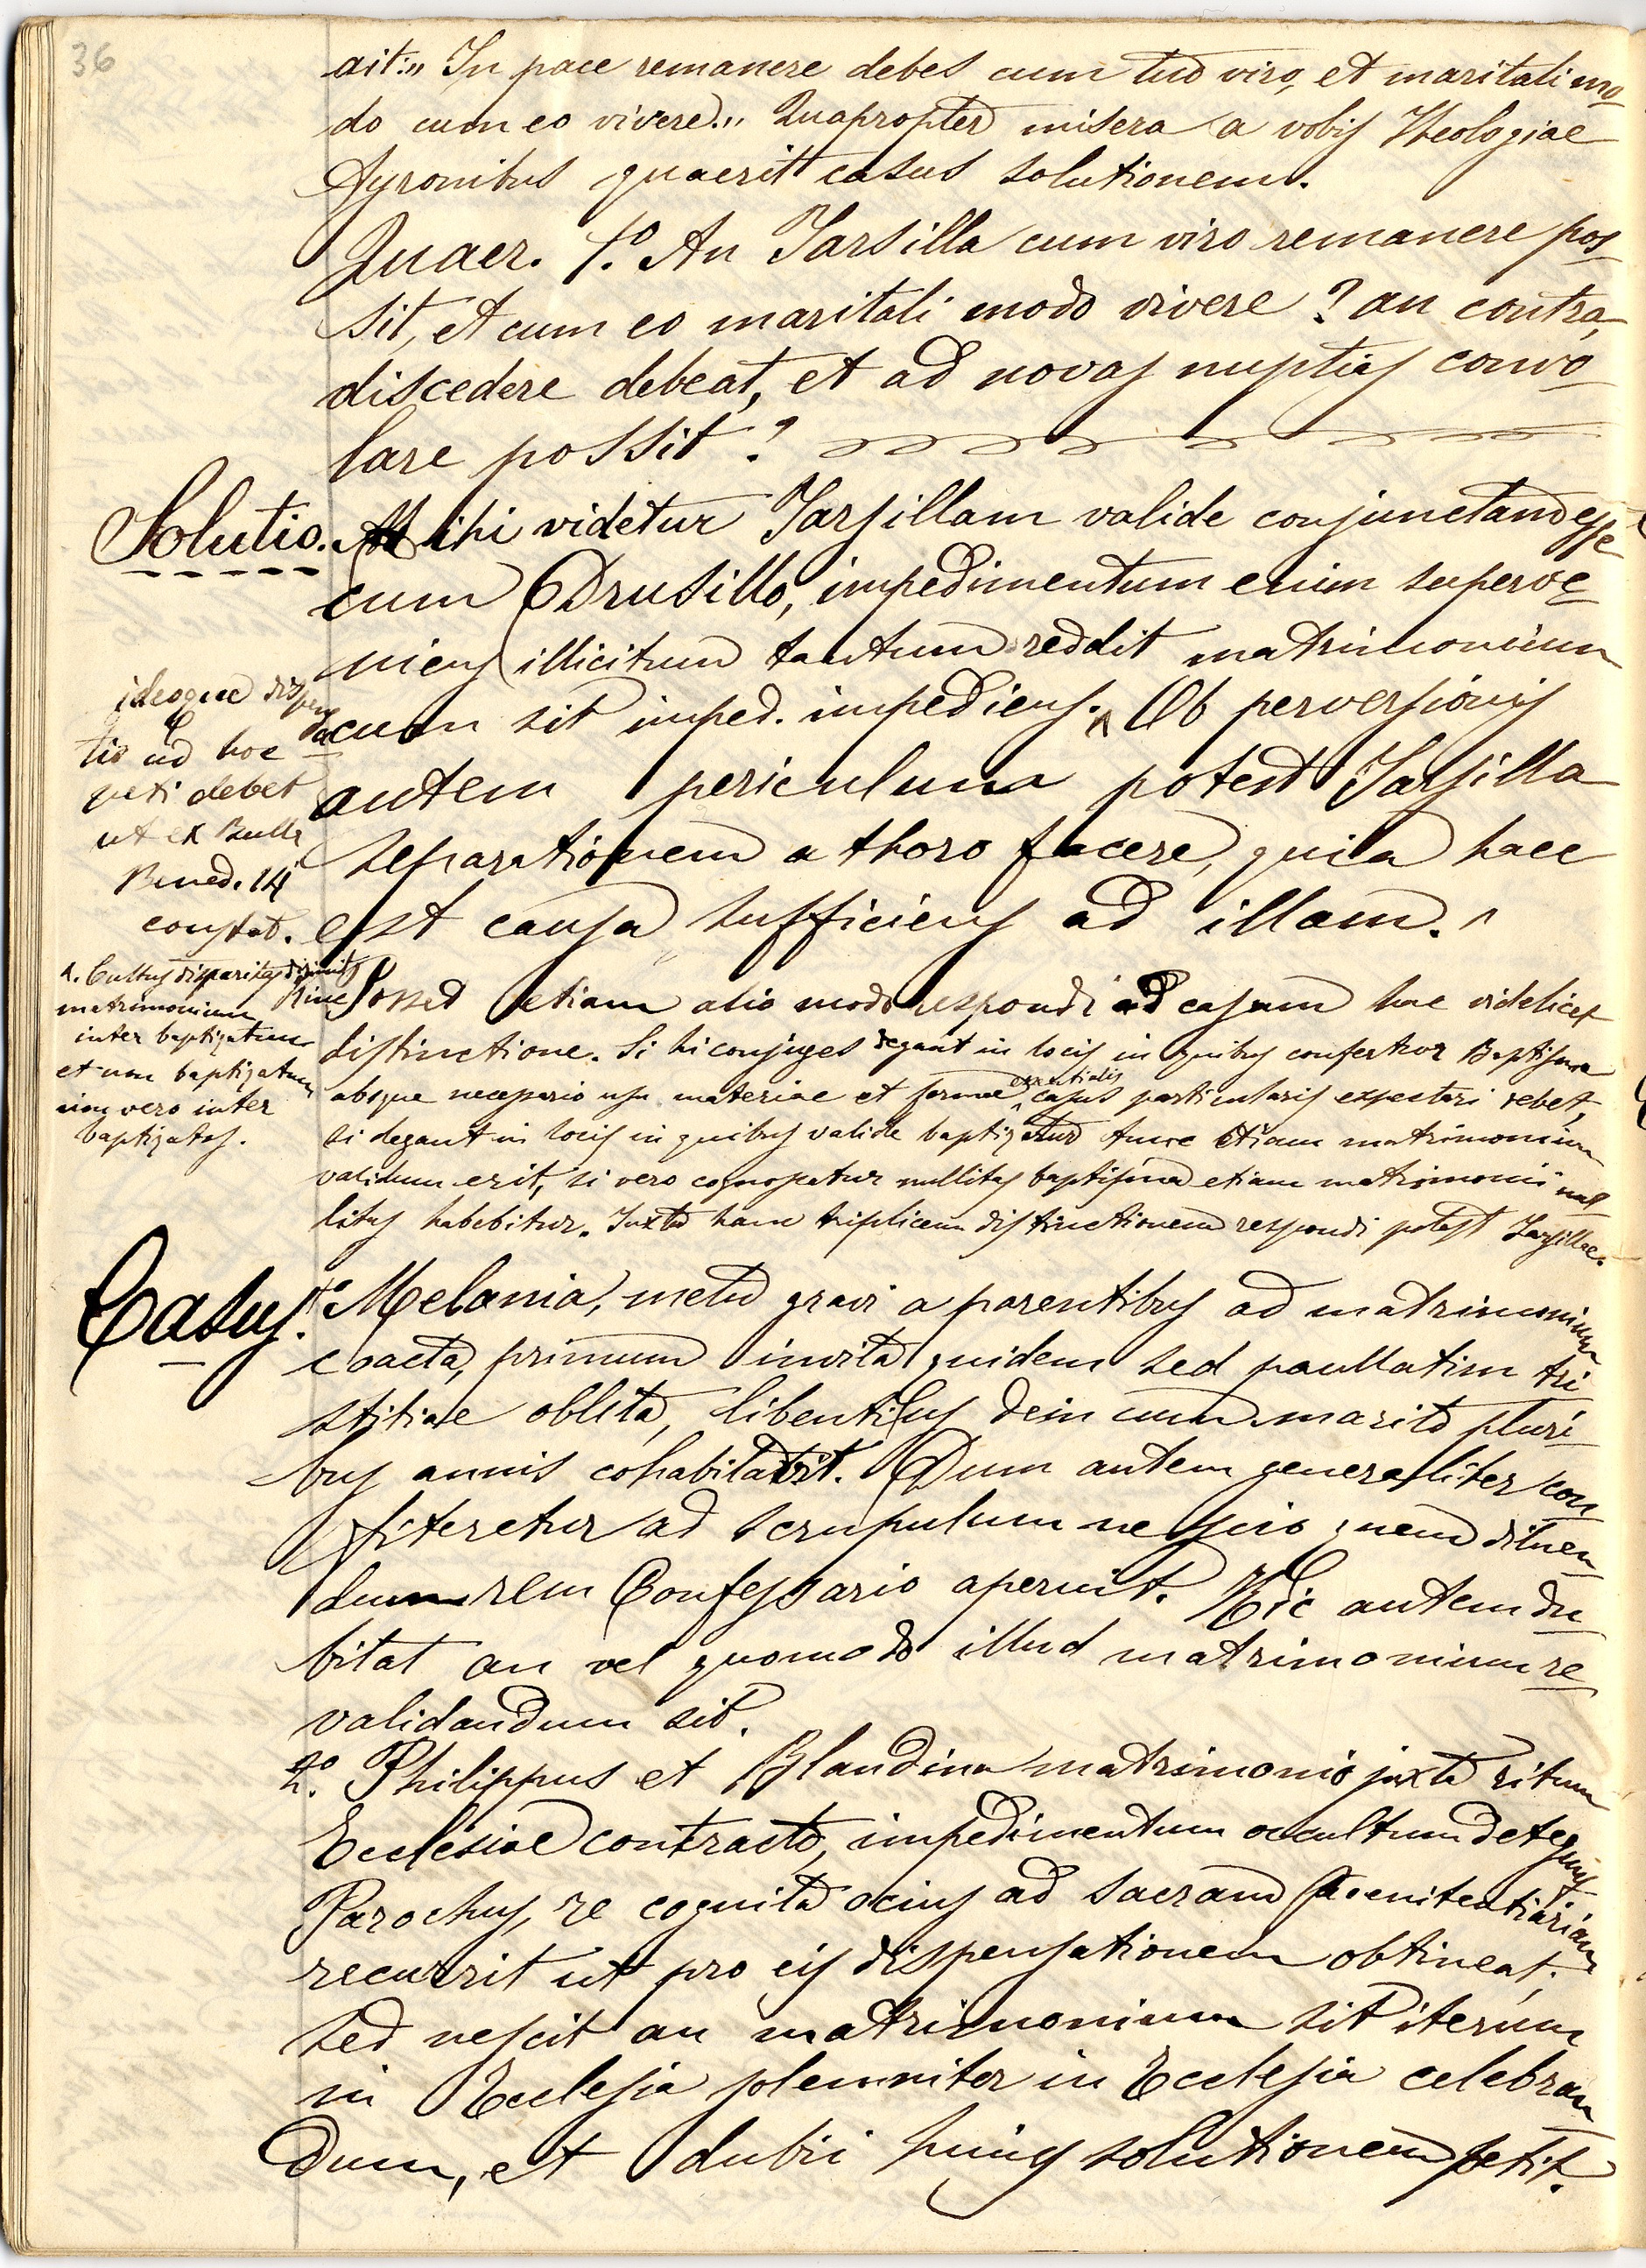 36
ait:„ In pace remanere debes cum tuo viro, et maritali mo-
do cum eo vivere.„ Quapropter misera a vobis Theologiae
Tyronibus quaerit casus solutionem.
Quaer. 1.º An Tarsilla cum viro remanere pos-
sit, et cum eo maritali modo vivere? an contra,
discedere debeat, et ad novas nuptias convo-
lare possit?
Solutio. Mihi videtur Tarsillam valide conjunctam esse
cum Drusillo, impedimentum enim superve-
niens illicitum tantum reddit matrimonium
cum sit imped. impediens. ^ Ob perversionis
autem periculum potest Tarsilla
separationem a thoro facere, quia haec
est causa sufficiens ad illam. ^
ideoque dispensa-
tio ad hoc
peti debet
ut ex Bulla
Bened. 14
constat.
^. Cultus disparitas dirimit
matrimonium
inter baptizatum
et non baptizatum
non vero inter
baptizatos.
Posset etiam alio modo responderi ad casum hac videlicet
distinctione. Si hi conjuges degant in locis in quibus confertur Baptisma
absque necessario usu materiae et formae essentialis casus particularis expectari debet,
si degant in locis in quibus valide baptizatur tunc etiam matrimonium
validum erit, si vero cognoscatur nullitas baptisma etiam matrimonii nul-
litas habebitur. Juxta hanc triplicem distinctionem respondi potest Tarsillae.
Casus. 1º Melania, metu gravi a parentibus ad matrimonium
coacta, primum invita quidem sed paullatim tri-
stitiae oblita, libentibus dein cum marito pluri-
bus annis cohabitavit. Dum autem generaliter con-
fiteretur ad scrupulum nescio quem diluen-
dum rem Confessario aperuit. Hic autem du-
bitat an vel quomodo illud matrimonium re-
validandum sit.
2º. Philippus et Blandina matrimonio juxta ritum
Ecclesiae contracto, impedimentum occultum detegunt
Parochus, re cognita ocius ad sacram Poenitentiariam
recurrit ut pro eis dispensationem obtineat;
sed nescit an matrimonium sit iterum
in Ecclesia solemniter in Ecclesia celebran-
dum, et dubii hujus solutionem petit.